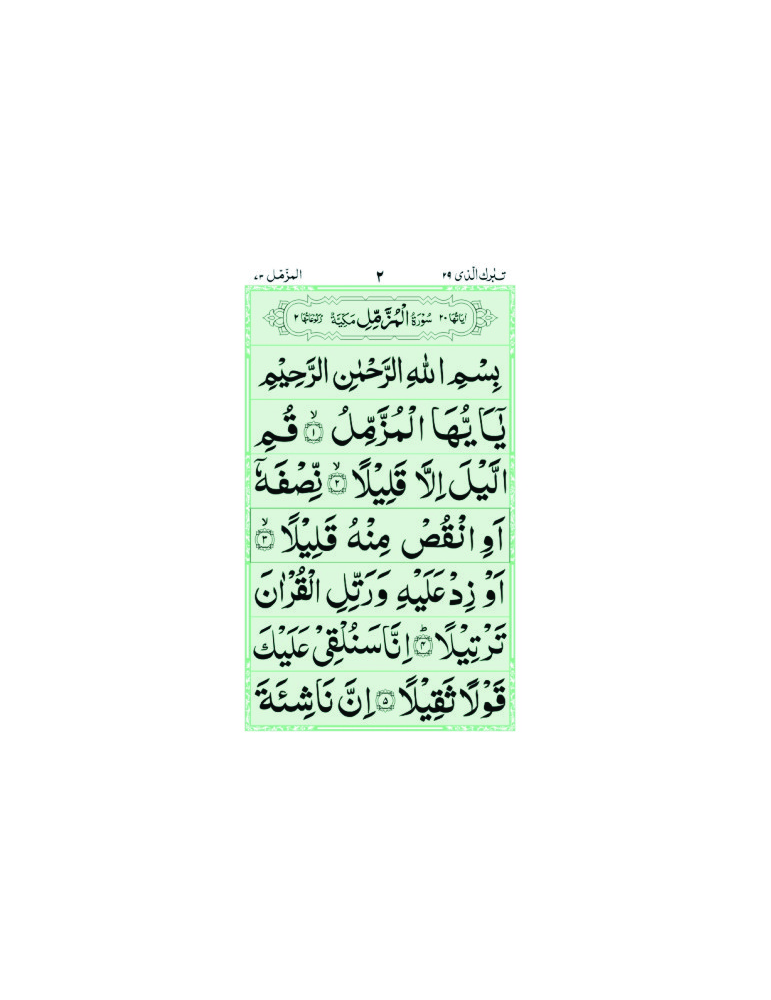 تبٰرك الّذی ۲۹ ۲ المزّمّل ۷۳
اٰیَاتُهَا ۲۰ سُوْرَةُ الْمُزَّمِّلِ مَكِّیَّةٌ رُكُوْعَاتُهَا ۲
بِسْمِ اللّٰهِ الرَّحْمٰنِ الرَّحِیْمِ
یٰۤاَیُّهَا الْمُزَّمِّلُ ۙ﴿۱﴾ قُمِ
الَّیْلَ اِلَّا قَلِیْلًا ۙ﴿۲﴾ نِّصْفَهٗۤ
اَوِ انْقُصْ مِنْهُ قَلِیْلًا ۙ﴿۳﴾
اَوْ زِدْ عَلَیْهِ وَرَتِّلِ الْقُرْاٰنَ
تَرْتِیْلًا ؕ﴿۴﴾ اِنَّا سَنُلْقِیْ عَلَیْكَ
قَوْلًا ثَقِیْلًا ﴿۵﴾ اِنَّ نَاشِئَةَ